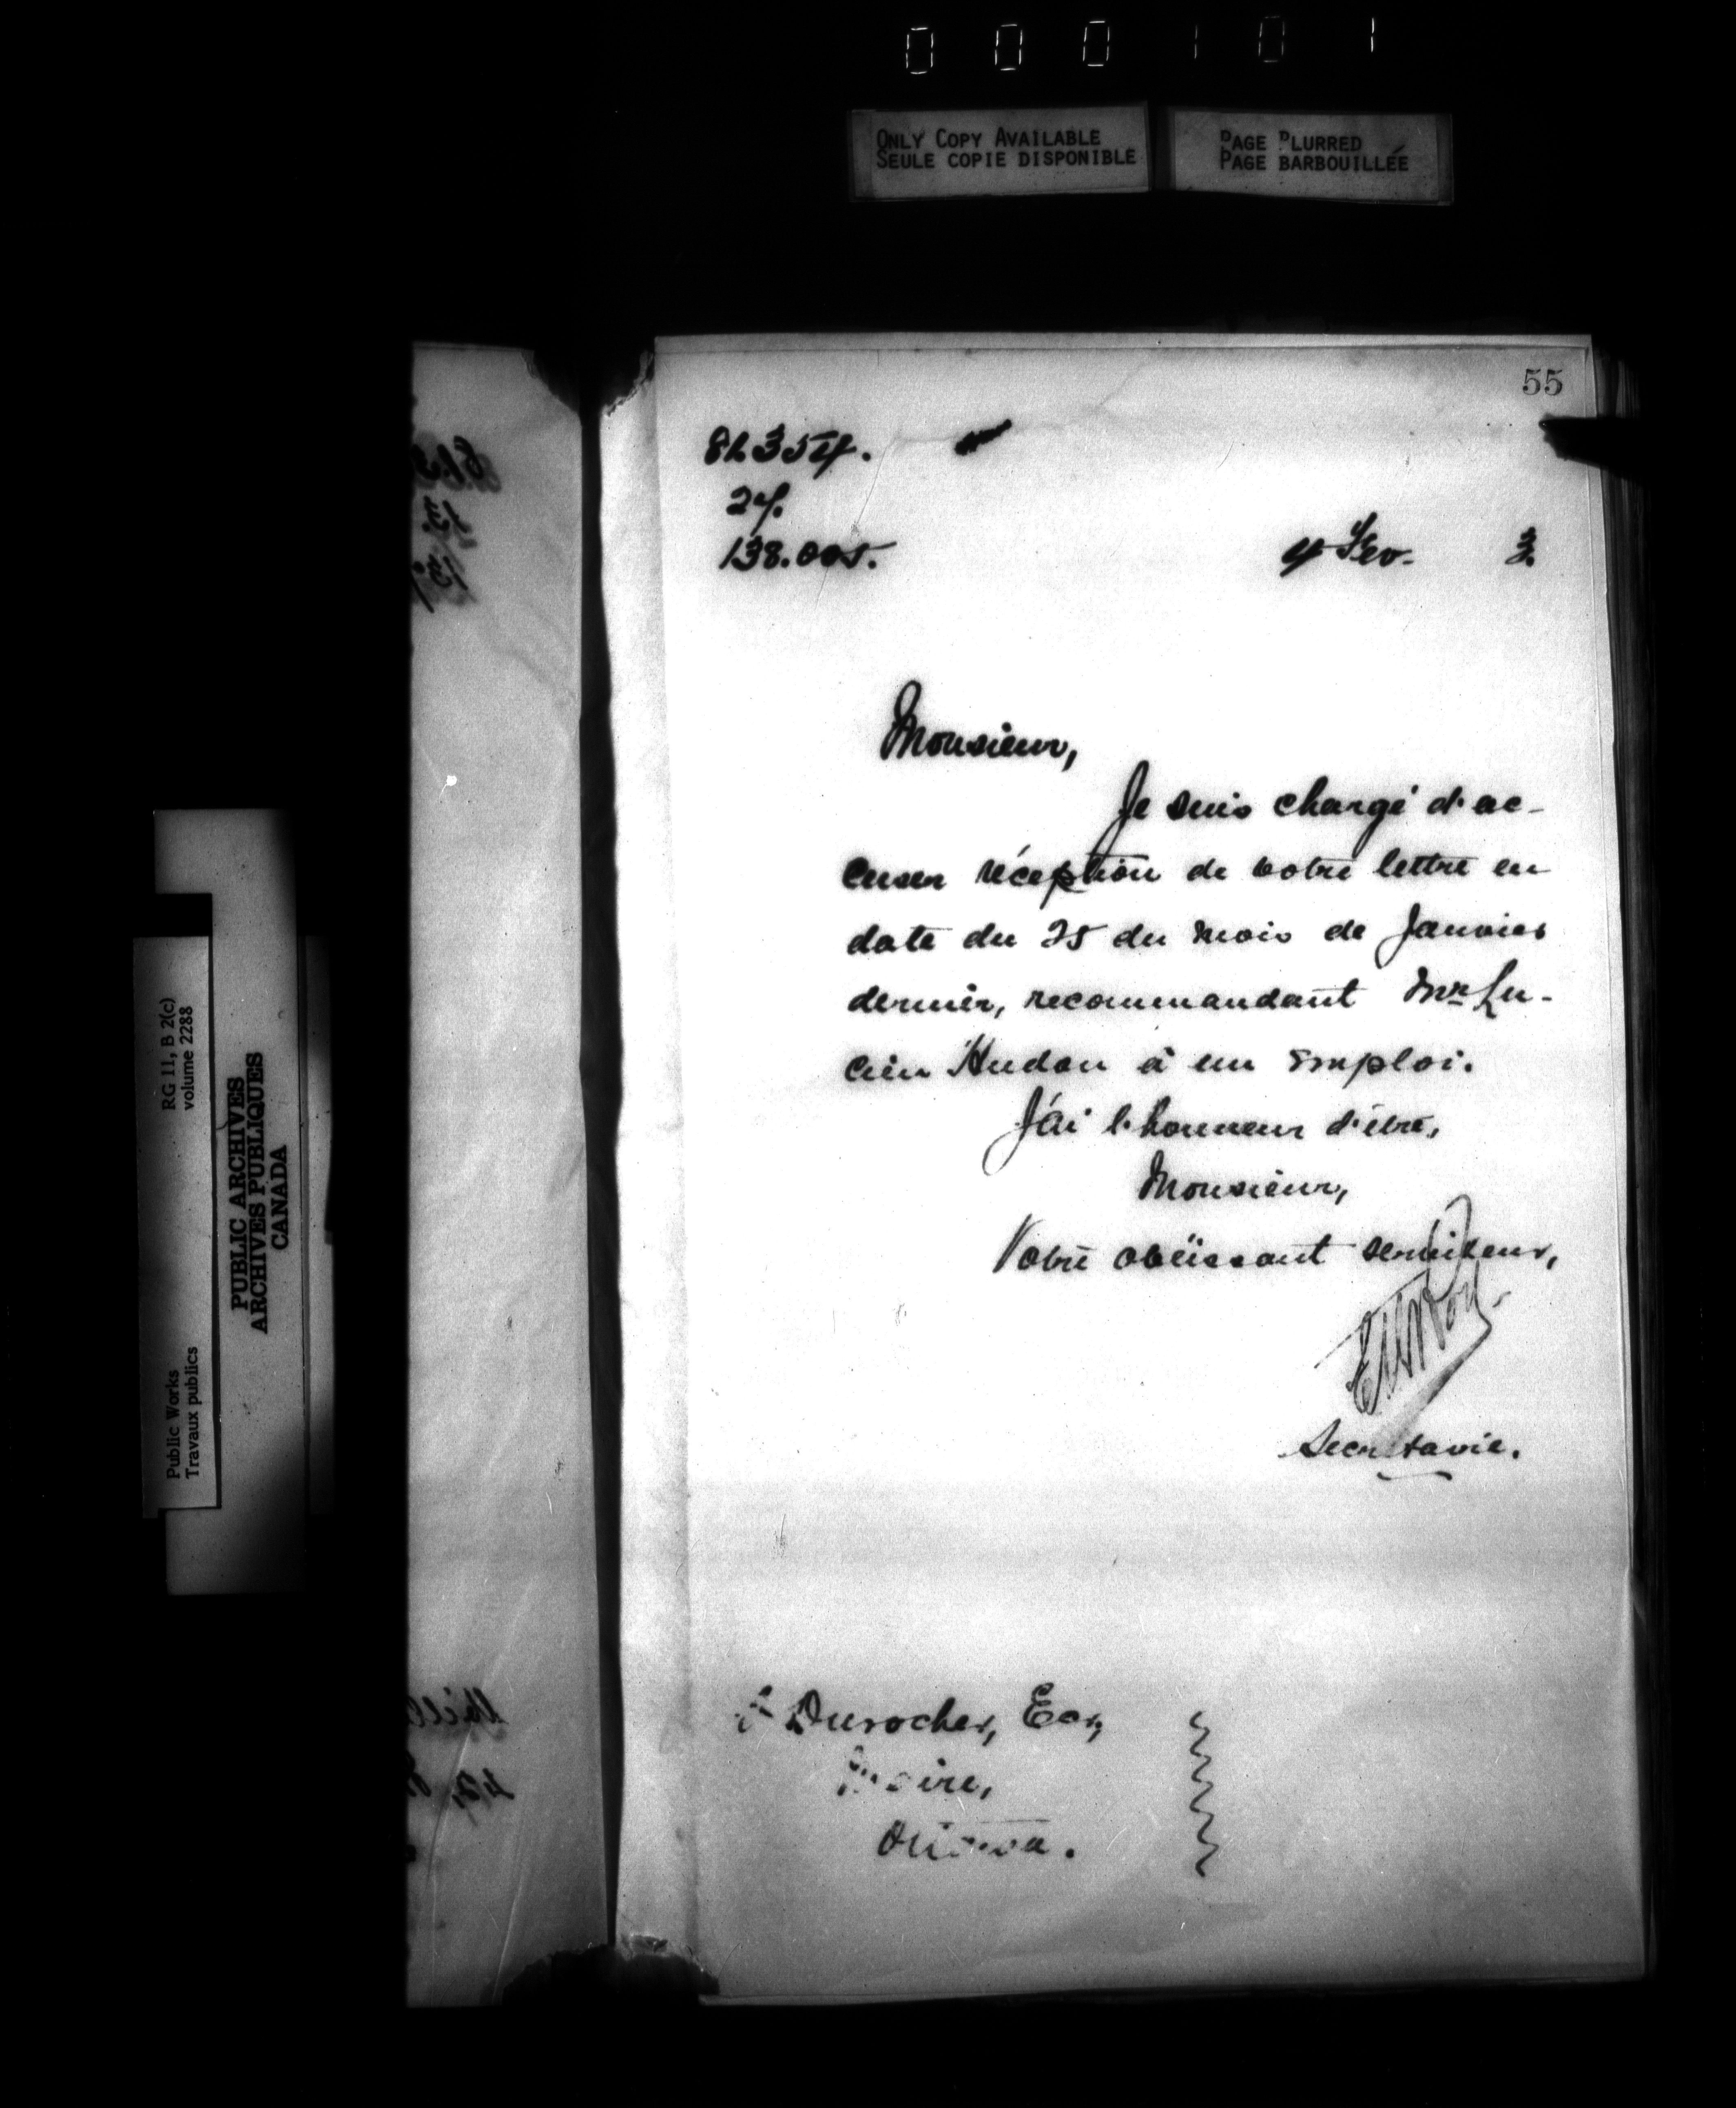 000101
ONLY COPY AVAILABLE
SEULE COPIE DISPONIBLE
PAGE BLURRED
PAGE BARBOUILLÉE
RG 11, B 2(c)
volume 2288
PUBLIC ARCHIVES
ARCHIVES PUBLIQUES
CANADA
Public Works
Travaux publics
55
27.
138.005.
4 Fev. 3.
Monsieur,
Je suis chargé d'ac-
cuser réception de votre lettre en
date du 25 du mois de Janvier
dernier, recommandant Mr Lu-
cien Hudon à un emploi.
J'ai l'honneur d'être,
Monsieur,
Votre obéissant serviteur,
Secrétaire.
Durocher, Ecr,
Maire,
Ottawa.